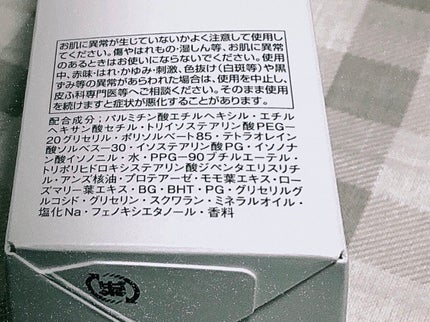 お肌に異常が生じていないかよく注意して使用し
てください。傷やはれもの・湿しん等、お肌に異常
のあるときはお使いにならないでください。使用
中、赤味・はれ・かゆみ・刺激、色抜け(白斑等)や黒
ずみ等の異常があらわれた場合は、使用を中止し、
皮ふ科専門医等へご相談ください。そのまま使用
を続けますと症状が悪化することがあります。
配合成分:パルミチン酸エチルヘキシル・エチル
ヘキサン酸セチル・トリイソステアリン酸PEG-
20グリセリル・ポリソルベート85・テトラオレイン
酸ソルベス-30・イソステアリン酸PG・イソノナ
ン酸イソノニル・水・PPG-9ブチルエーテル・
トリポリヒドロキシステアリン酸ジペンタエリスリチ
ル・アンズ核油・プロテアーゼ・モモ葉エキス・ロー
ズマリー葉エキス・BG・BHT・PG・グリセリルグ
ルコシド・グリセリン・スクワラン・ミネラルオイル・
塩化Na・フェノキシエタノール・香料